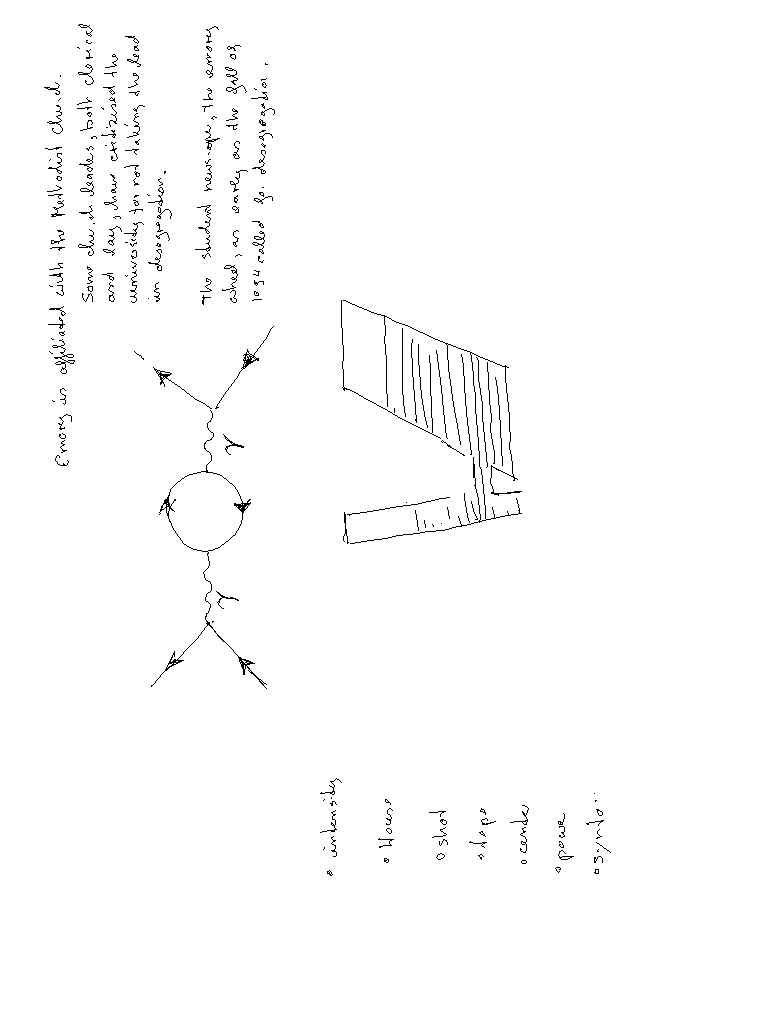 Emory is affiliated with the Methodist church.
Some church leaders, both clerical
and lay, have critizised the
university for not taking the lead
in desegregation.
The student newspaper, the emory
wheel, as early as the fall of
1954 called for desegregation.
γ
γ
• intensity
• House
• shot
• center
• power